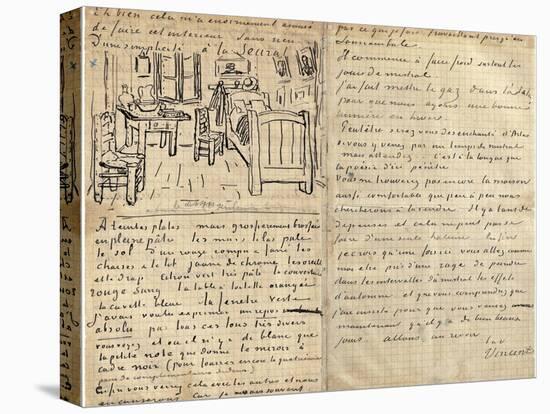 Eh bien cela m'a enormement amusé
de faire cet interieur sans rien
D'une simplicité à la Seurat
A teintes plates mais grossierement brossées
en pleine pâte les murs lilas pale
le sol d'un rouge rompu & fané les
chaises & le lit jaune de chrome les oreillers
et le drap citron vert très pâle la couverture
rouge sang la table à toilette orangée
la cuvette bleue la fenetre verte
j'avais voulu exprimer un repos
absolu par tous ces tons très divers
vous voyez et où il n'y a de blanc que
la petite note que donne le miroir à
cadre noir (pour fourrer encore la quatrième
paire de complementaires dedans)
Enfin vous verrez cela avec les autres et nous
en causerons car je ne sais souvent
pas ce que je fais travaillant presqu'en
somnambule.
Il commence à faire froid surtout les
jours de mistral.
J'ai fait mettre le gaz dans l'atelier
pour que nous ayons une bonne
lumière en hiver.
Peutêtre serez vous desenchanté d'Arles
si vous y venez par un temps de mistral
mais attendez.. C'est à la longue que
la poésie d'ici pénètre.
Vous ne trouverez pas encore la maison
aussi confortable que peu à peu nous
chercherons à la rendre. Il y a tant de
dépenses et cela ne peut pas se
faire d'une seule haleine. Enfin
je crois qu'une fois ici vous allez comme
moi etre pris d'une rage de peindre
dans les intervalles du mistral les effets
d'automne et que vous comprendrez que
j'ai insisté pour que vous veniez
maintenant qu'il y a de bien beaux
jours. allons au revoir
t.à v.
Vincent